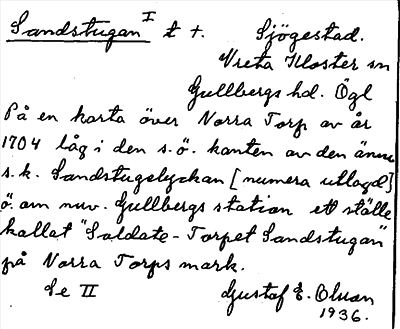 Sandstugan I t +. Sjögestad.
Vreta Kloster sn
Gullbergs hd. Ögl
På en karta över Norra Torp av år
1704 låg i den s.ö. kanten av den ännu
s.k. Sandstugelyckan [numera utlagd]
ö. om nuv. Gullbergs station ett ställe
kallat "Soldate-Torpet Sandstugan"
på Norra Torps mark.
Se II Gustaf E. Olson
1936.